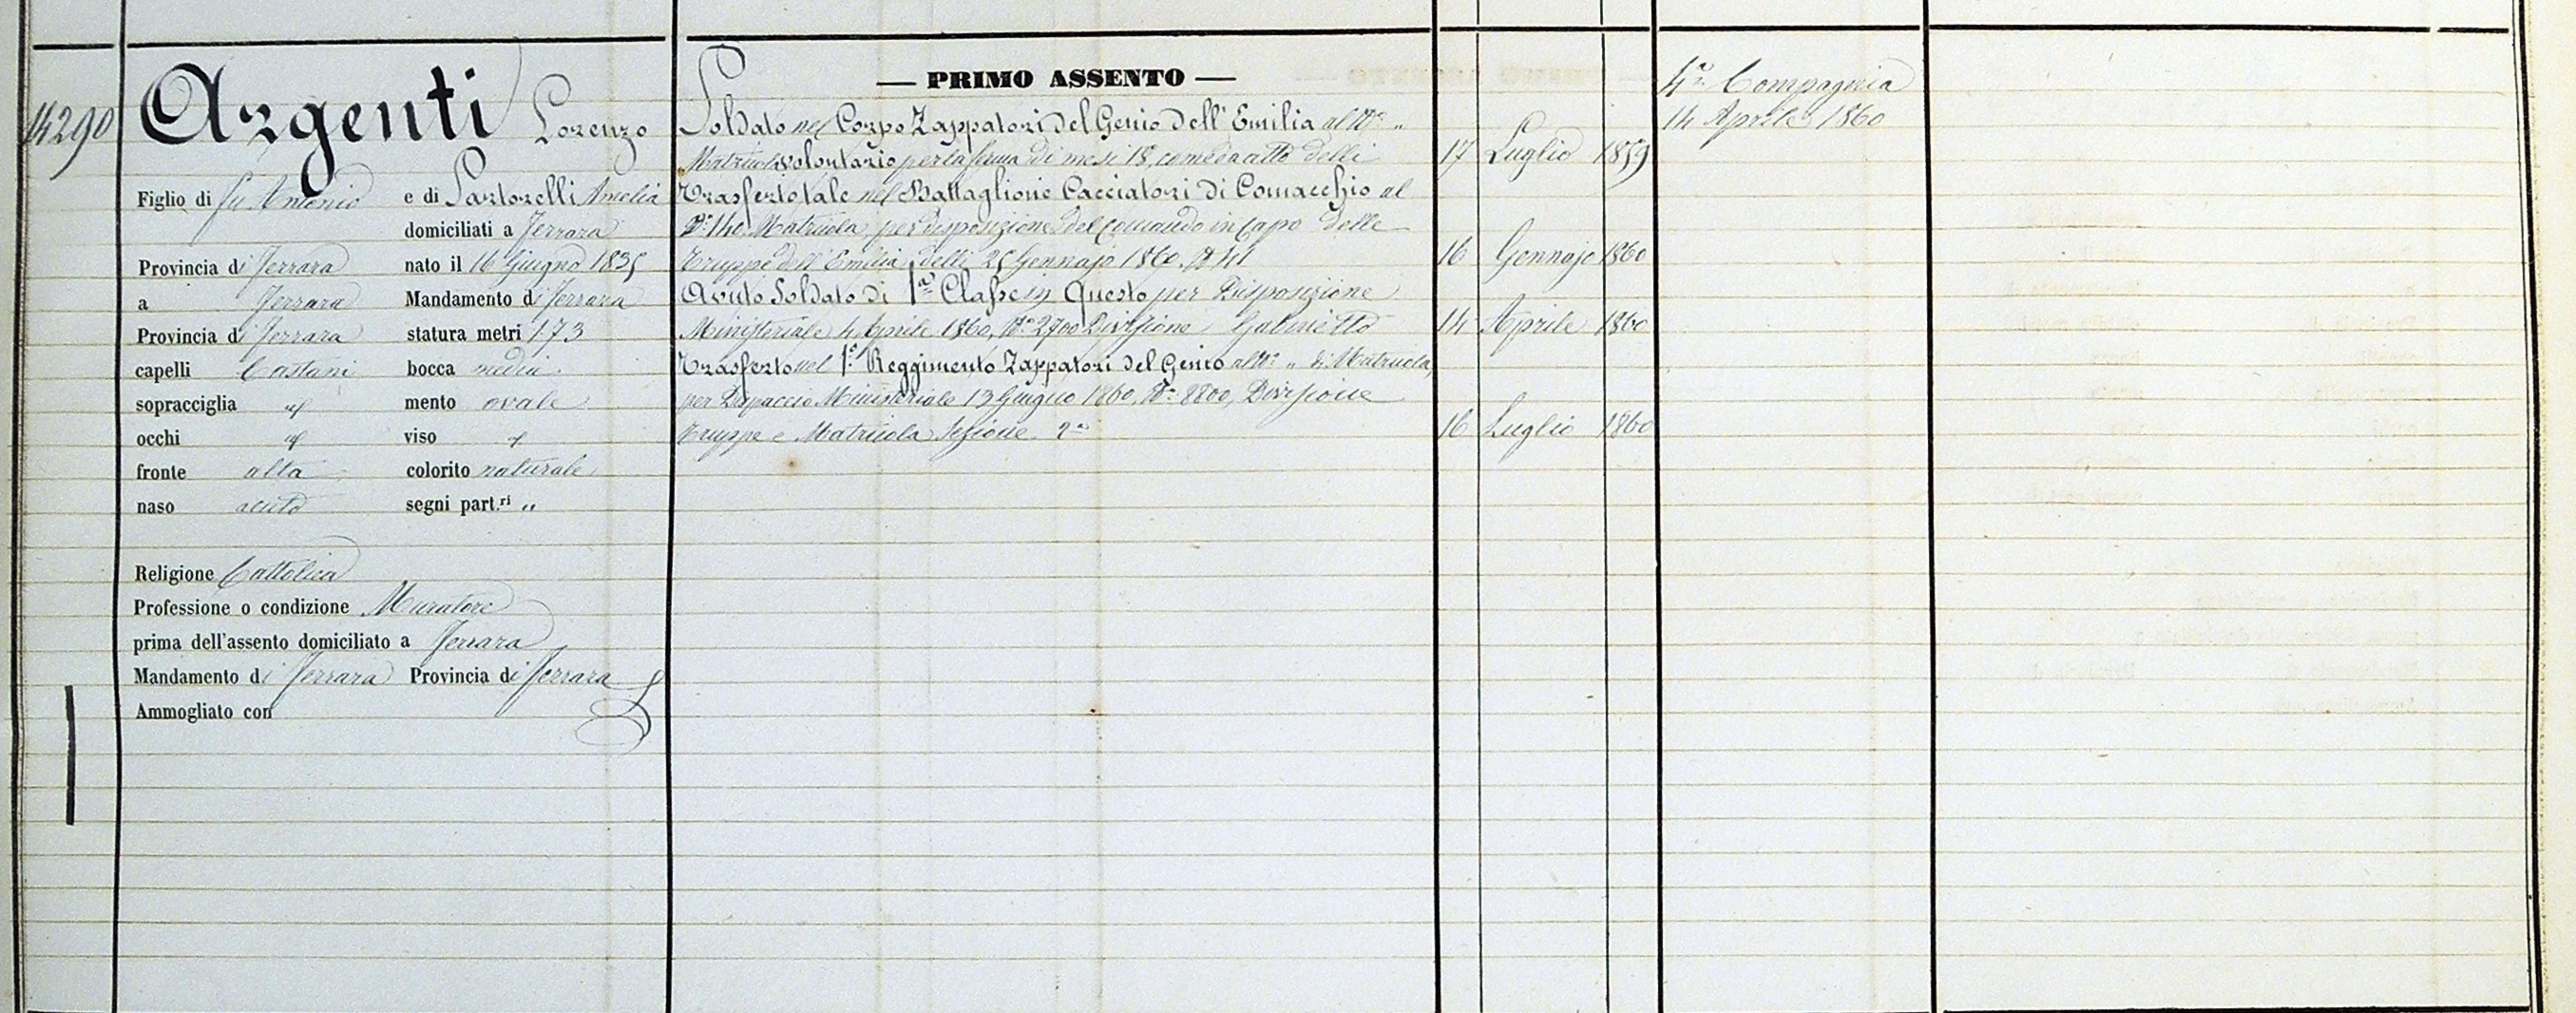 14290
Argenti Lorenzo
Figlio di fu Antonio e di Sartorelli Amelia
domiciliati a Ferrara
Provincia di Ferrara nato il 16 Giugno 1835
a Ferrara Mandamento di Ferrara
Provincia di Ferrara statura metri 1.73
capelli Castani bocca media
sopracciglia id mento ovale
occhi id viso id
fronte alta colorito naturale
naso acuto segni part.ri „
Religione Cattolica
Professione o condizione Muratore
prima dell'assento domiciliato a Ferrara
Mandamento di Ferrara Provincia di Ferrara
Ammogliato con
— PRIMO ASSENTO —
Soldato nel Corpo Zappatori del Genio dell'Emilia al N.° „
Matricola volontario per la ferma di mesi 18, come da atto delli 17 Luglio 1859
Trasferto tale nel Battaglione Cacciatori di Comacchio al
N.° 140 Matricola per disposizione del Comando in Capo delle
Truppe dell'Emilia delli 25 Gennajo 1860, N. 41 16 Gennajo 1860
Avuto Soldato di 1.a Classe in Questo per Disposizione
Ministeriale 4 Aprile 1860, N.° 2700 Divisione Gabinetto 14 Aprile 1860
Trasferto nel 1.° Reggimento Zappatori del Genio al N.° „ di Matricola,
per Dispaccio Ministeriale 13 Giugno 1860, N.° 8800, Divisione
Truppe e Matricola Sezione 2.a 16 Luglio 1860
4.a Compagnia
14 Aprile 1860